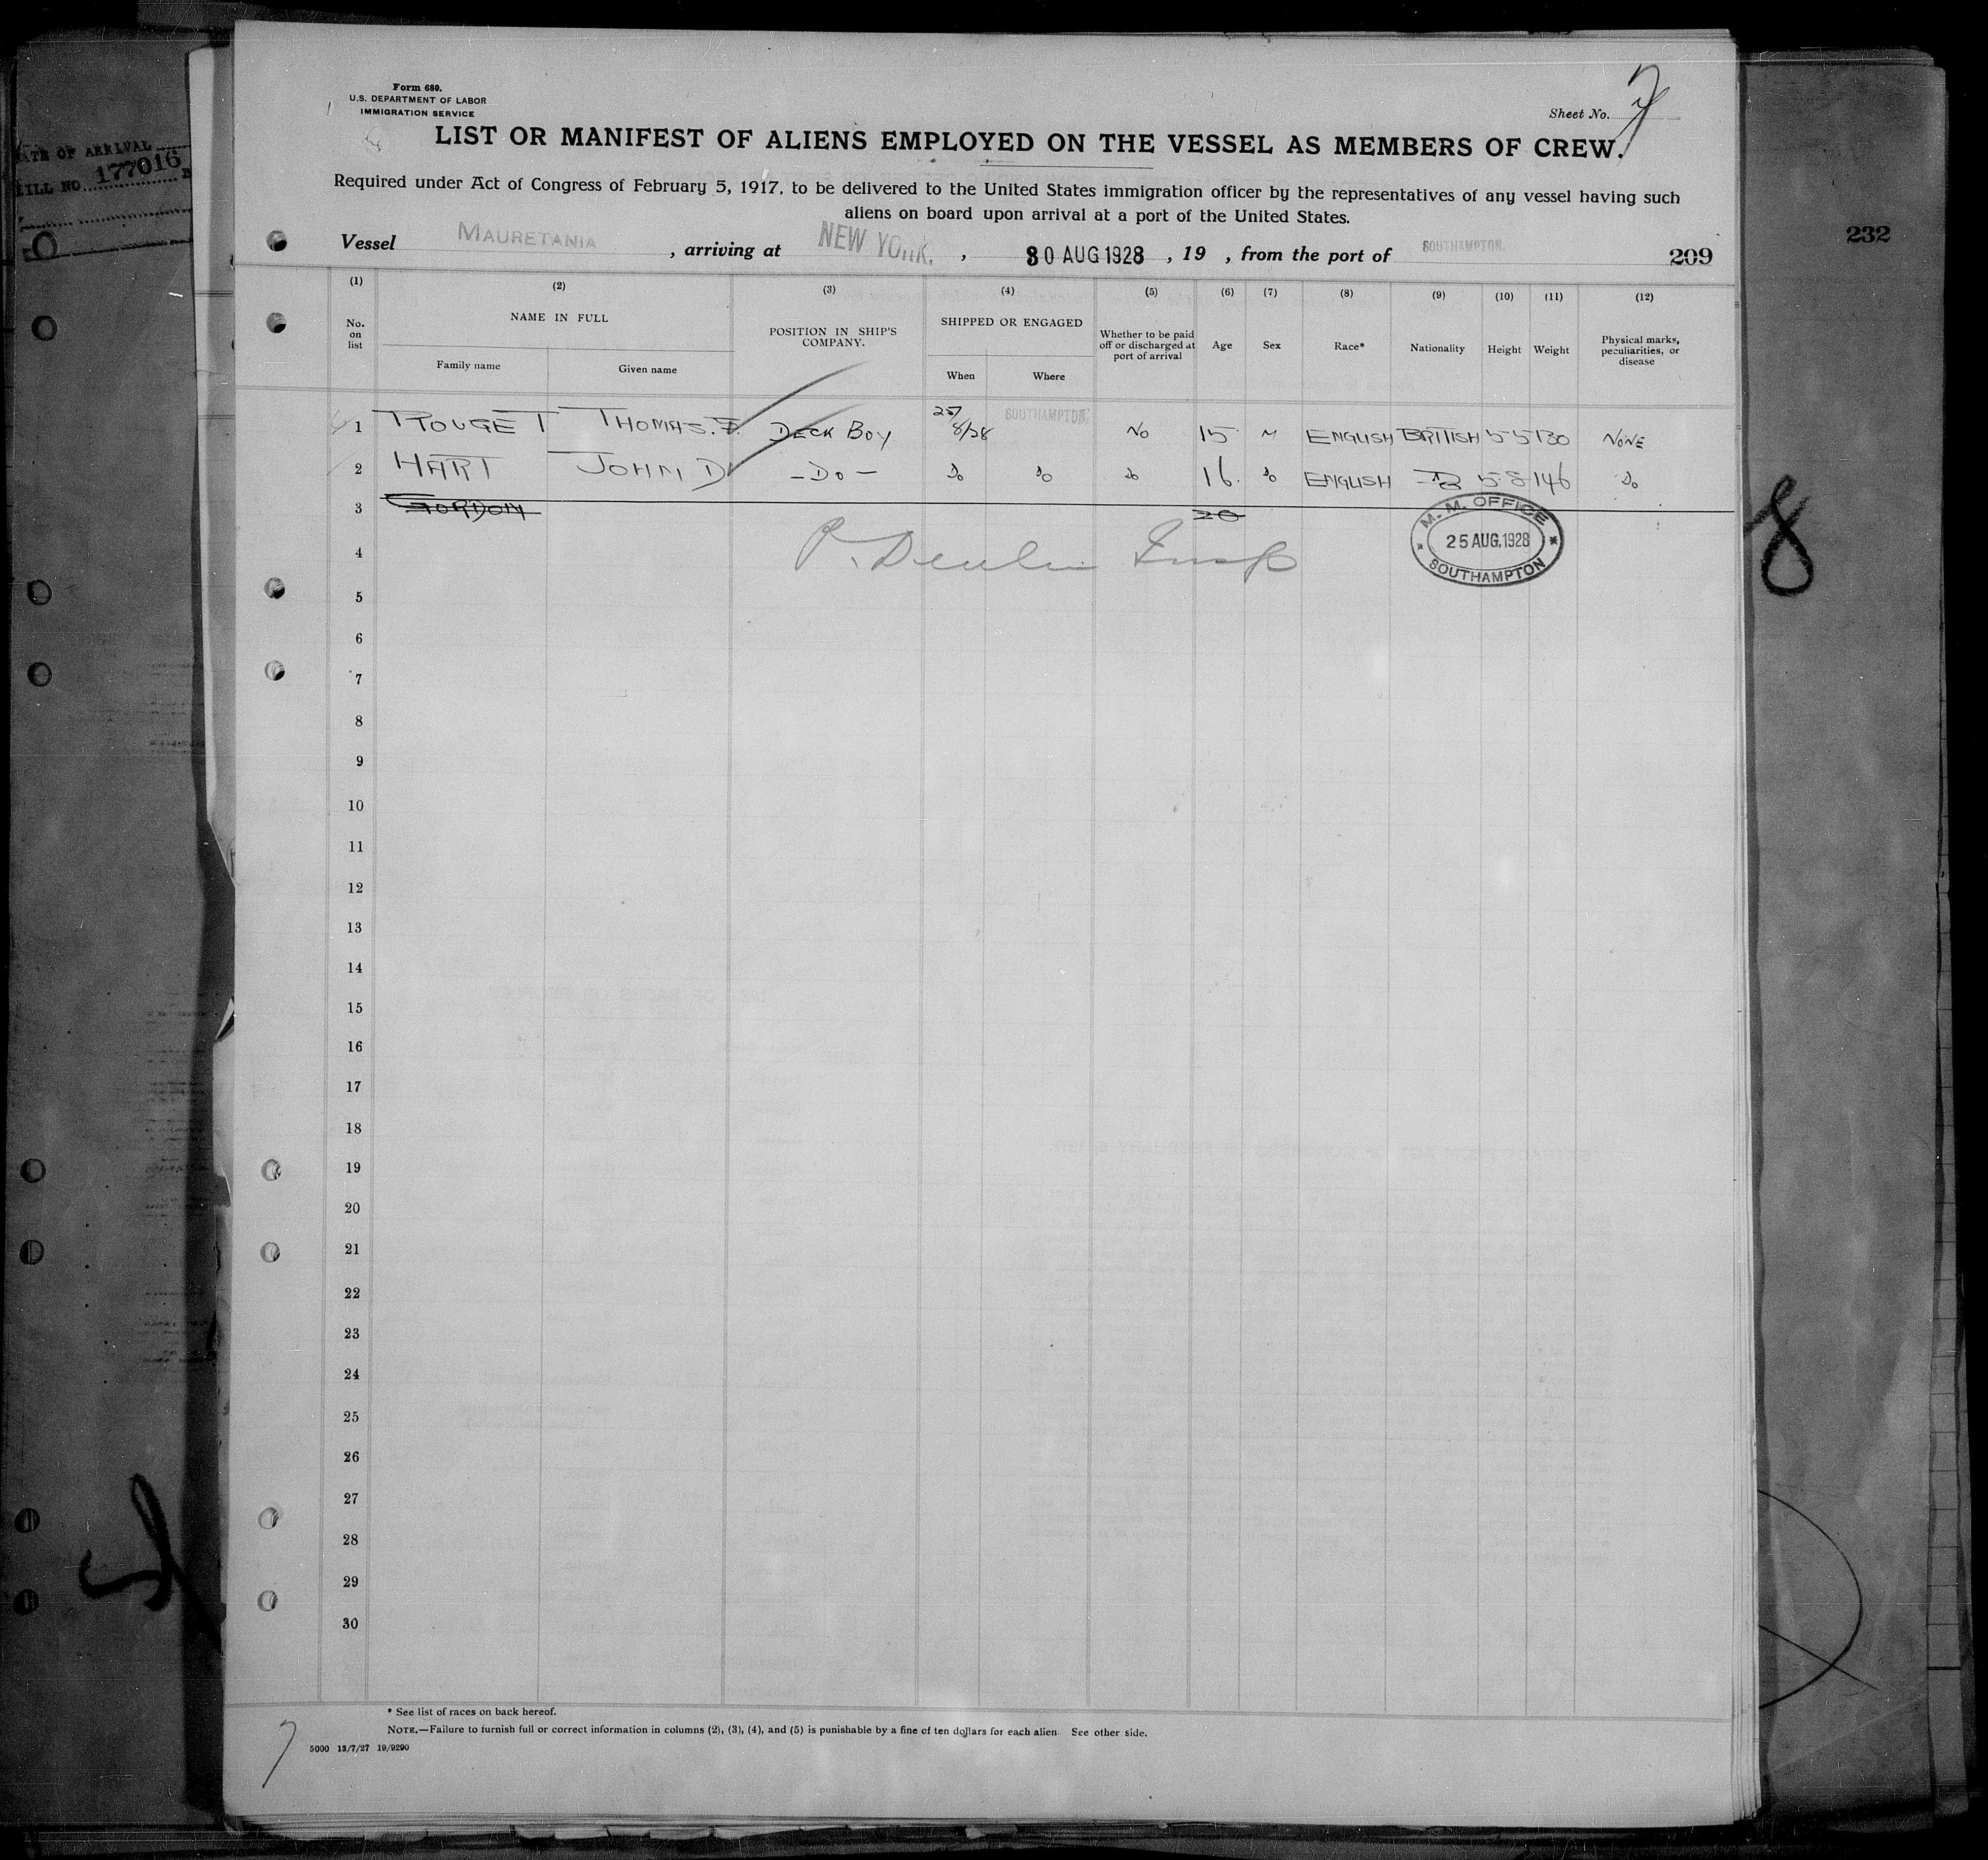 DATE OF ARRIVAL
BILL NO. 177016
Form 680.
U.S. DEPARTMENT OF LABOR
IMMIGRATION SERVICE
Sheet No. 7
LIST OR MANIFEST OF ALIENS EMPLOYED ON THE VESSEL AS MEMBERS OF CREW.
Required under Act of Congress of February 5, 1917, to be delivered to the United States immigration officer by the representatives of any vessel having such
aliens on board upon arrival at a port of the United States.
Vessel MAURETANIA, arriving at NEW YORK., 30 AUG 1928, 19 , from the port of SOUTHAMPTON. 209
232
(1) (2) (3) (4) (5) (6) (7) (8) (9) (10) (11) (12)
No. on list NAME IN FULL POSITION IN SHIP'S COMPANY. SHIPPED OR ENGAGED Whether to be paid off or discharged at port of arrival Age Sex Race* Nationality Height Weight Physical marks, peculiarities, or disease
Family name Given name When Where
1 ROUGET THOMAS. DECK BOY 25/8/28 SOUTHAMPTON. NO 15 M ENGLISH BRITISH 5-5 130 NONE
2 HART JOHN D -DO- DO DO DO 16. DO ENGLISH DO 5-8 146 DO
3 GORDON 20
4 Insp
M. M. OFFICE
25 AUG. 1928
SOUTHAMPTON
8
5
6
7
8
9
10
11
12
13
14
15
16
17
18
19
20
21
22
23
24
25
26
27
28
29
30
* See list of races on back hereof.
NOTE.—Failure to furnish full or correct information in columns (2), (3), (4), and (5) is punishable by a fine of ten dollars for each alien. See other side.
5000 13/7/27 19/9290
7